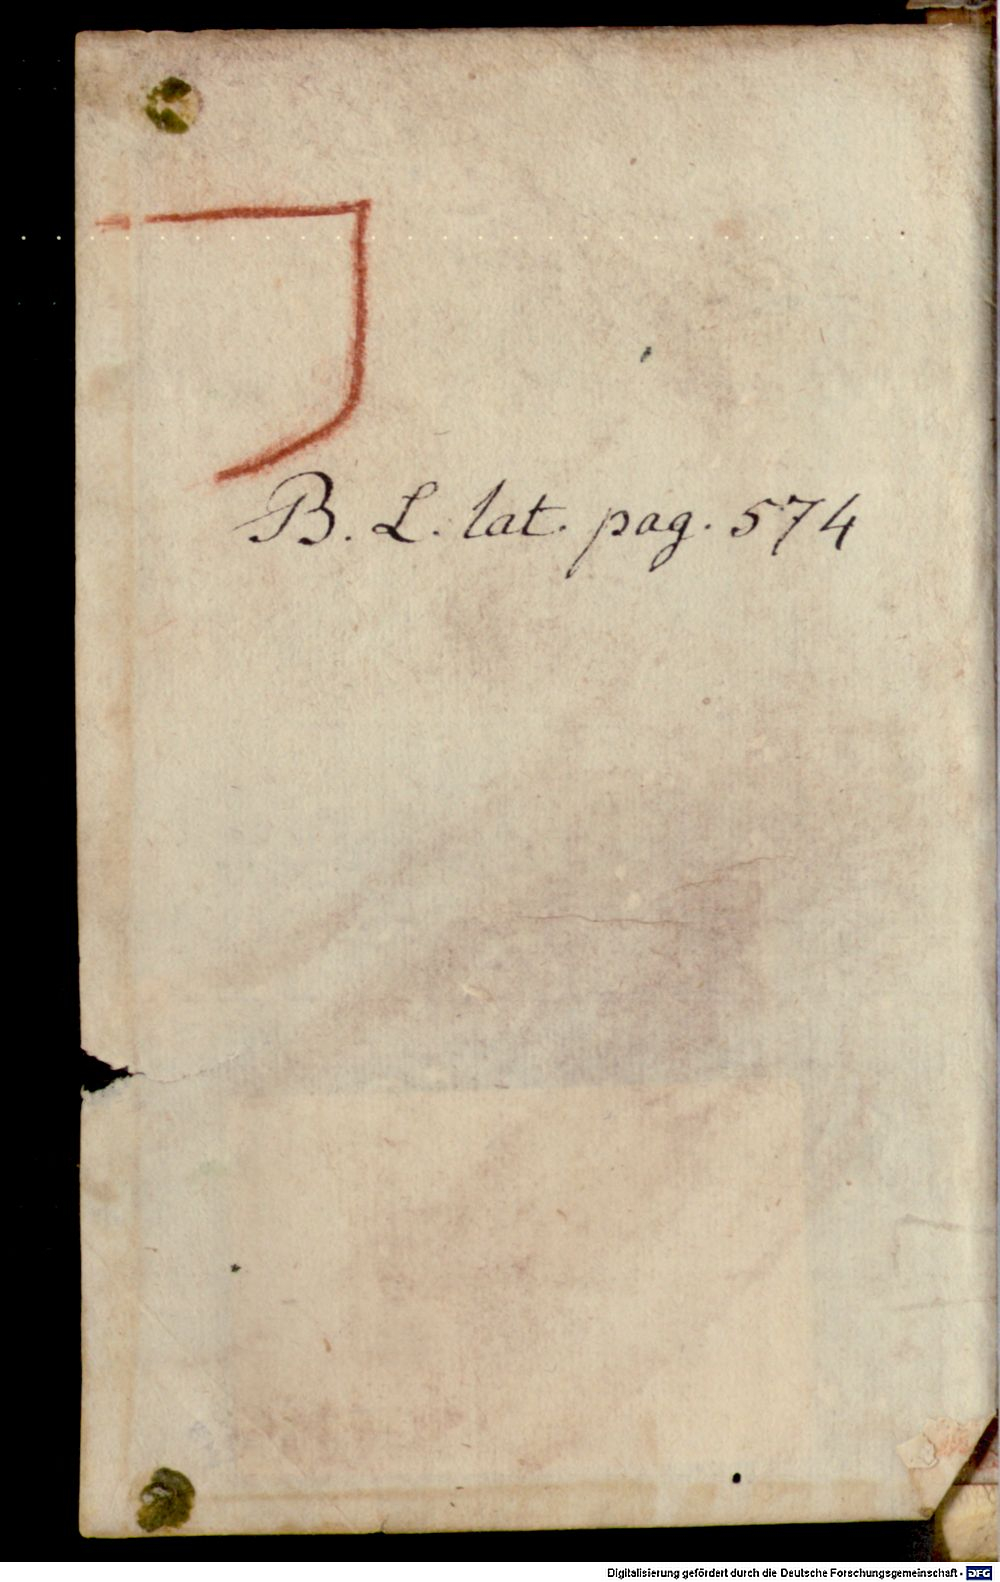 B. L. lat. pag. 574
Digitalisierung gefördert durch die Deutsche Forschungsgemeinschaft - DFG